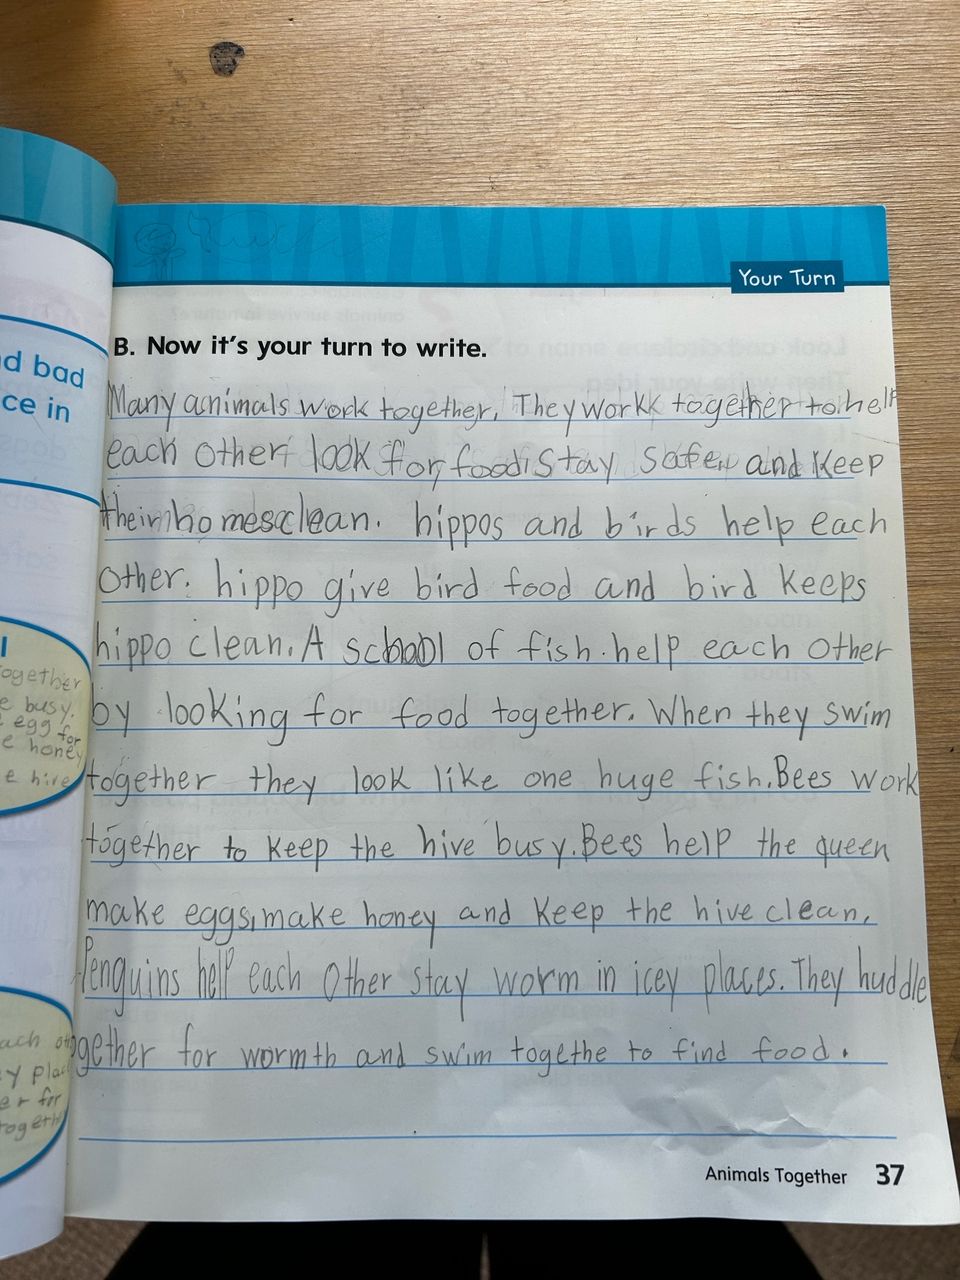 Your Turn
B. Now it's your turn to write.
Many animals work together. They workk together to help
each other look for food stay safe, and keep
their homes clean. hippos and birds help each
other. hippo give bird food and bird keeps
hippo clean. A school of fish. help each other
by looking for food together. When they swim
together they look like one huge fish. Bees work
together to keep the hive busy. Bees help the queen
make eggs, make honey and keep the hive clean.
Penguins help each other stay worm in icey places. They huddle
together for wormth and swim togethe to find food.
Animals Together 37
d bad
ce in
ogether
e busy.
egg for
e honey
e hive
ach oth
y plac
er for
togeth